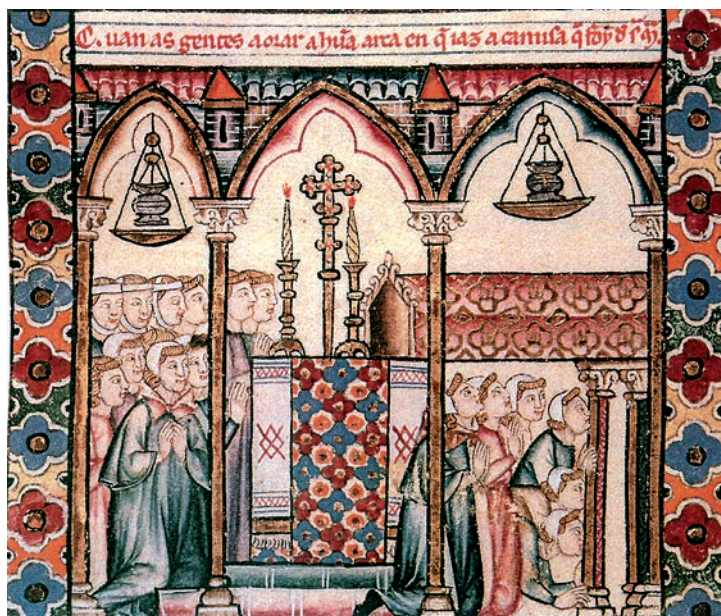 C. uan as gentes aorar ahũa arca en q̃ iaz a camisa q̃ foy d s̃